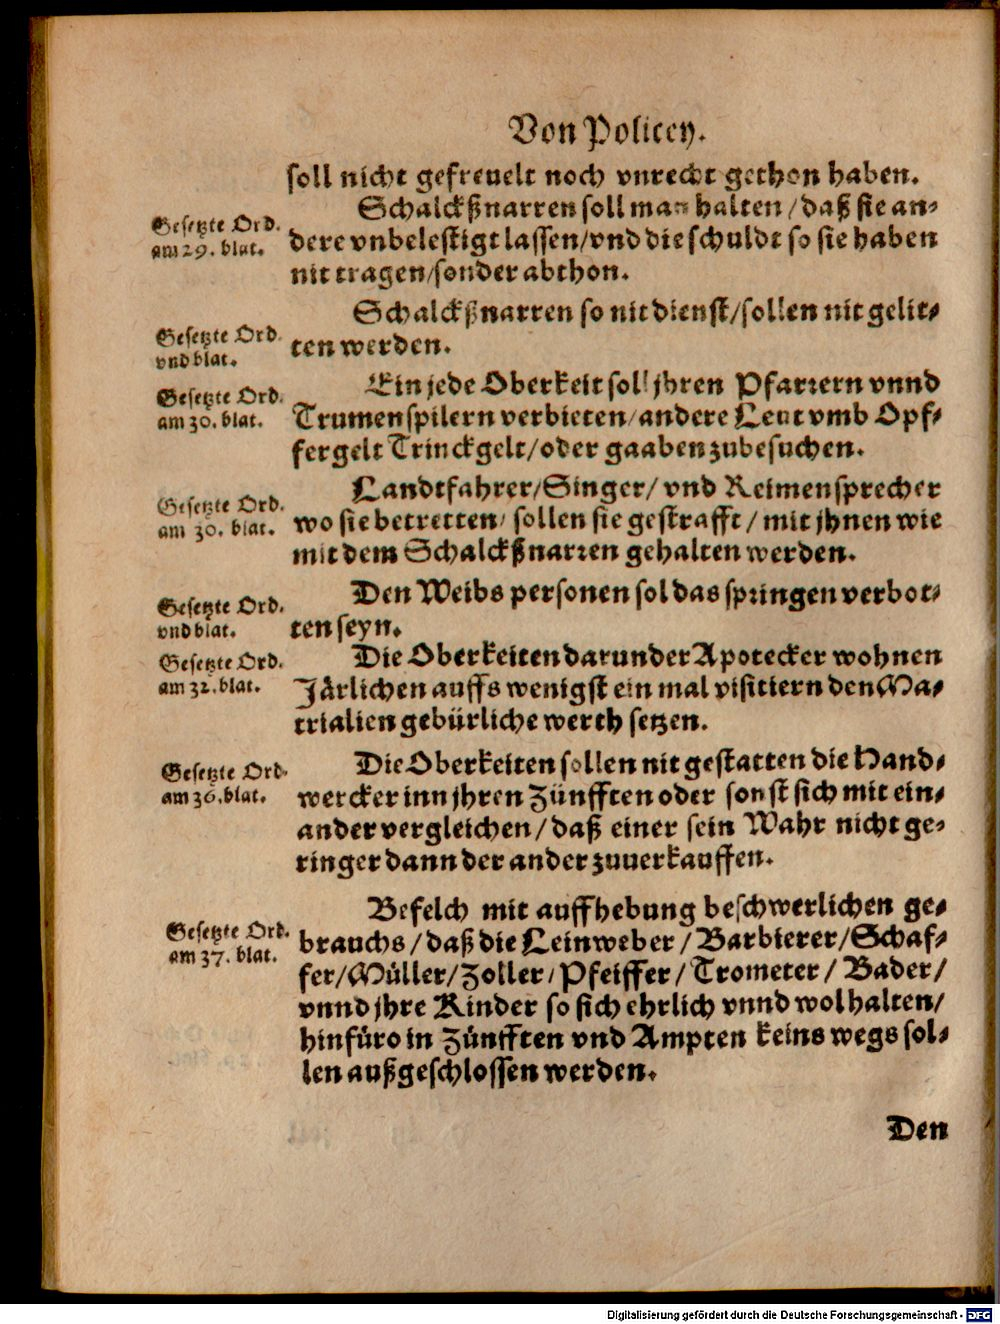 Von Policey.
soll nicht gefreuelt noch vnrecht gethon haben.
Schalckßnarren soll man halten / daß sie an-
Gesetzte Ord.
am 29. blat.
dere vnbelestigt lassen/vnd die schuldt so sie haben
nit tragen/sonder abthon.
Schalckßnarren so nit dienst/sollen nit gelit-
Gesetzte Ord.
vnd blat.
ten werden.
Ein jede Oberkeit soll jhren Pfarrern vnnd
Gesetzte Ord.
am 30. blat.
Trumenspilern verbieten/andere Leut vmb Opf-
fergelt Trinckgelt/oder gaaben zubesuchen.
Landtfahrer/Singer/ vnd Reimensprecher
Gesetzte Ord.
am 30. blat.
wo sie betretten/ sollen sie gestrafft / mit jhnen wie
mit dem Schalckßnarren gehalten werden.
Den Weibs personen sol das springen verbot-
Gesetzte Ord.
vnd blat.
ten seyn.
Die Oberkeiten darunder Apotecker wohnen
Gesetzte Ord.
am 32. blat.
Järlichen auffs wenigst ein mal visitiern den Ma-
trialien gebürliche werth setzen.
Die Oberkeiten sollen nit gestatten die Hand-
Gesetzte Ord.
am 36. blat.
wercker inn jhren Zünfften oder sonst sich mit ein-
ander vergleichen / daß einer sein Wahr nicht ge-
ringer dann der ander zuuerkauffen.
Befelch mit auffhebung beschwerlichen ge-
Gesetzte Ord.
am 37. blat.
brauchs / daß die Leinweber / Barbierer/Schaf-
fer/Müller/Zoller/Pfeiffer/ Trometer / Bader/
vnnd jhre Kinder so sich ehrlich vnnd wol halten/
hinfüro in Zünfften vnd Ampten keins wegs sol-
len außgeschlossen werden.
Den
Digitalisierung gefördert durch die Deutsche Forschungsgemeinschaft - DFG